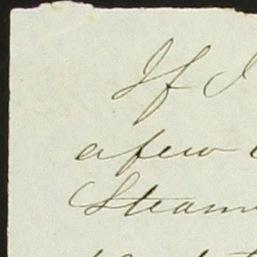 If I
a few
Steam